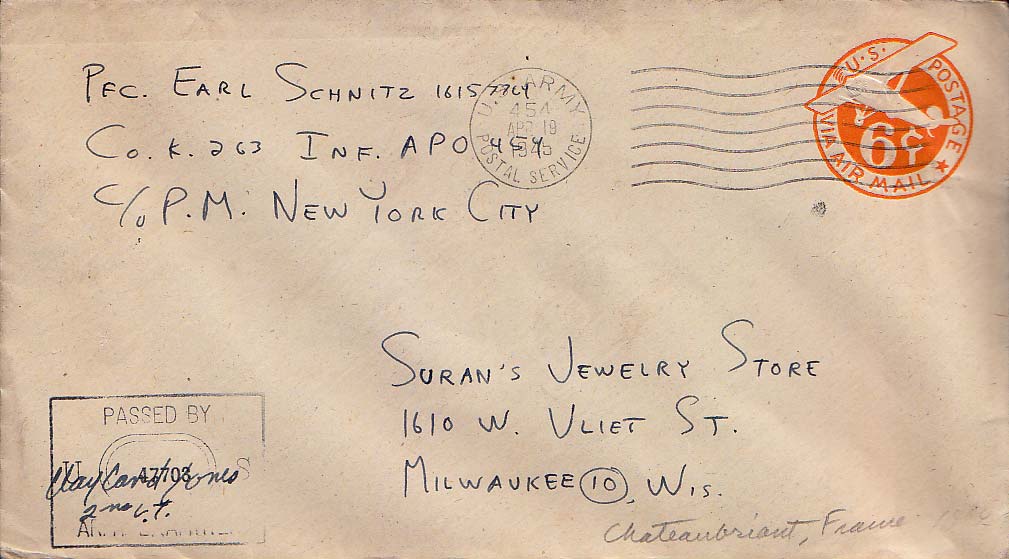 PFC. EARL SCHNITZ
CO. K. 263 INF. APO 454
C/O P.M. NEW YORK CITY
U.S. ARMY
454
APR 19
1945
POSTAL SERVICE
U.S. POSTAGE
6¢
VIA AIR MAIL
SURAN'S JEWELRY STORE
1610 W. VLIET ST.
MILWAUKEE 10, WIS.
Chateaubriant, France
PASSED BY
U S
47708
Jones
2nd Lt.
ARMY EXAMINER